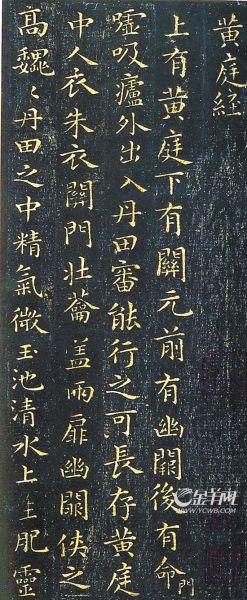 黄庭經
上有黄庭下有關元前有幽闕後有命門
嘘吸廬外出入丹田審能行之可長存黄庭
中人衣朱衣關門壮蘥盖兩扉幽闕俠之
高巍〻丹田之中精氣微玉池清水上生肥靈
金羊网
WWW.YCWB.COM